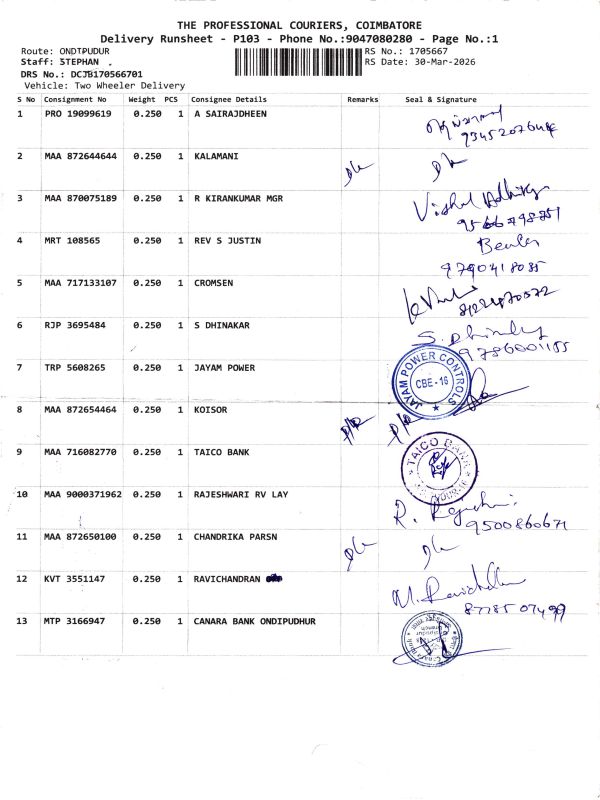 THE PROFESSIONAL COURIERS, COIMBATORE
Delivery Runsheet - P103 - Phone No.:9047080280 - Page No.:1
Route: ONDIPUDUR
RS No.: 1705667
Staff: STEPHAN .
RS Date: 30-Mar-2026
DRS No.: DCJB170566701
Vehicle: Two Wheeler Delivery
S No Consignment No Weight PCS Consignee Details Remarks Seal & Signature
1 PRO 19099619 0.250 1 A SAIRAJDHEEN
2 MAA 872644644 0.250 1 KALAMANI
3 MAA 870075189 0.250 1 R KIRANKUMAR MGR
4 MRT 108565 0.250 1 REV S JUSTIN
9790418085
5 MAA 717133107 0.250 1 CROMSEN
6 RJP 3695484 0.250 1 S DHINAKAR
9786001155
7 TRP 5608265 0.250 1 JAYAM POWER
JAYAM POWER CONTROLS
CBE - 16
8 MAA 872654464 0.250 1 KOISOR
9 MAA 716082770 0.250 1 TAICO BANK
TAICO BANK
10 MAA 9000371962 0.250 1 RAJESHWARI RV LAY
9500860671
11 MAA 872650100 0.250 1 CHANDRIKA PARSN
12 KVT 3551147 0.250 1 RAVICHANDRAN
M. Ravichandran
8778507499
13 MTP 3166947 0.250 1 CANARA BANK ONDIPUDHUR